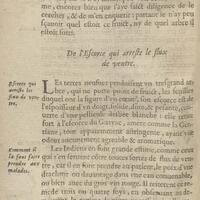 me, encores bien que j'aye faict diligence de le
cercher, & de m'en enquerir; partant ie n'ay peu
sçauoir quel estoit ce fruict, ny de quel arbre il
estoit sorti.
De l'Escorce qui arreste le flux
de ventre.
Escorce qui
arreste les
flux de ven
tre.
LEs terres neufues produisent vn tresgrand ar-
bre, qui ne porte point de fruict, les feuilles
duquel ont la figure d'vn cœur, son escorce est de
l'espoisseur d'vn doigt, solide, dure, & pesante, cou-
uerte d'vne pellicule
fort à l'escorce du Gayac, amere comme la Gen-
tiane, tout apparemment astringente, ayant d'vne
odeur aucunement agreable & aromatique.
Comment il
la faut faire
prendre aux
malades.
Les Indiens en font grande estime, comme ceux
qui s'en seruent côtre toutes sortes de flux de ven-
tre, car ils en font prendre au patient, le poids d'vne
drachme ou dauantage, dans de l'eau commune,
ou bien auec du gros vin rouge. Il reitere
mede trois ou quatre foys, en obseruant